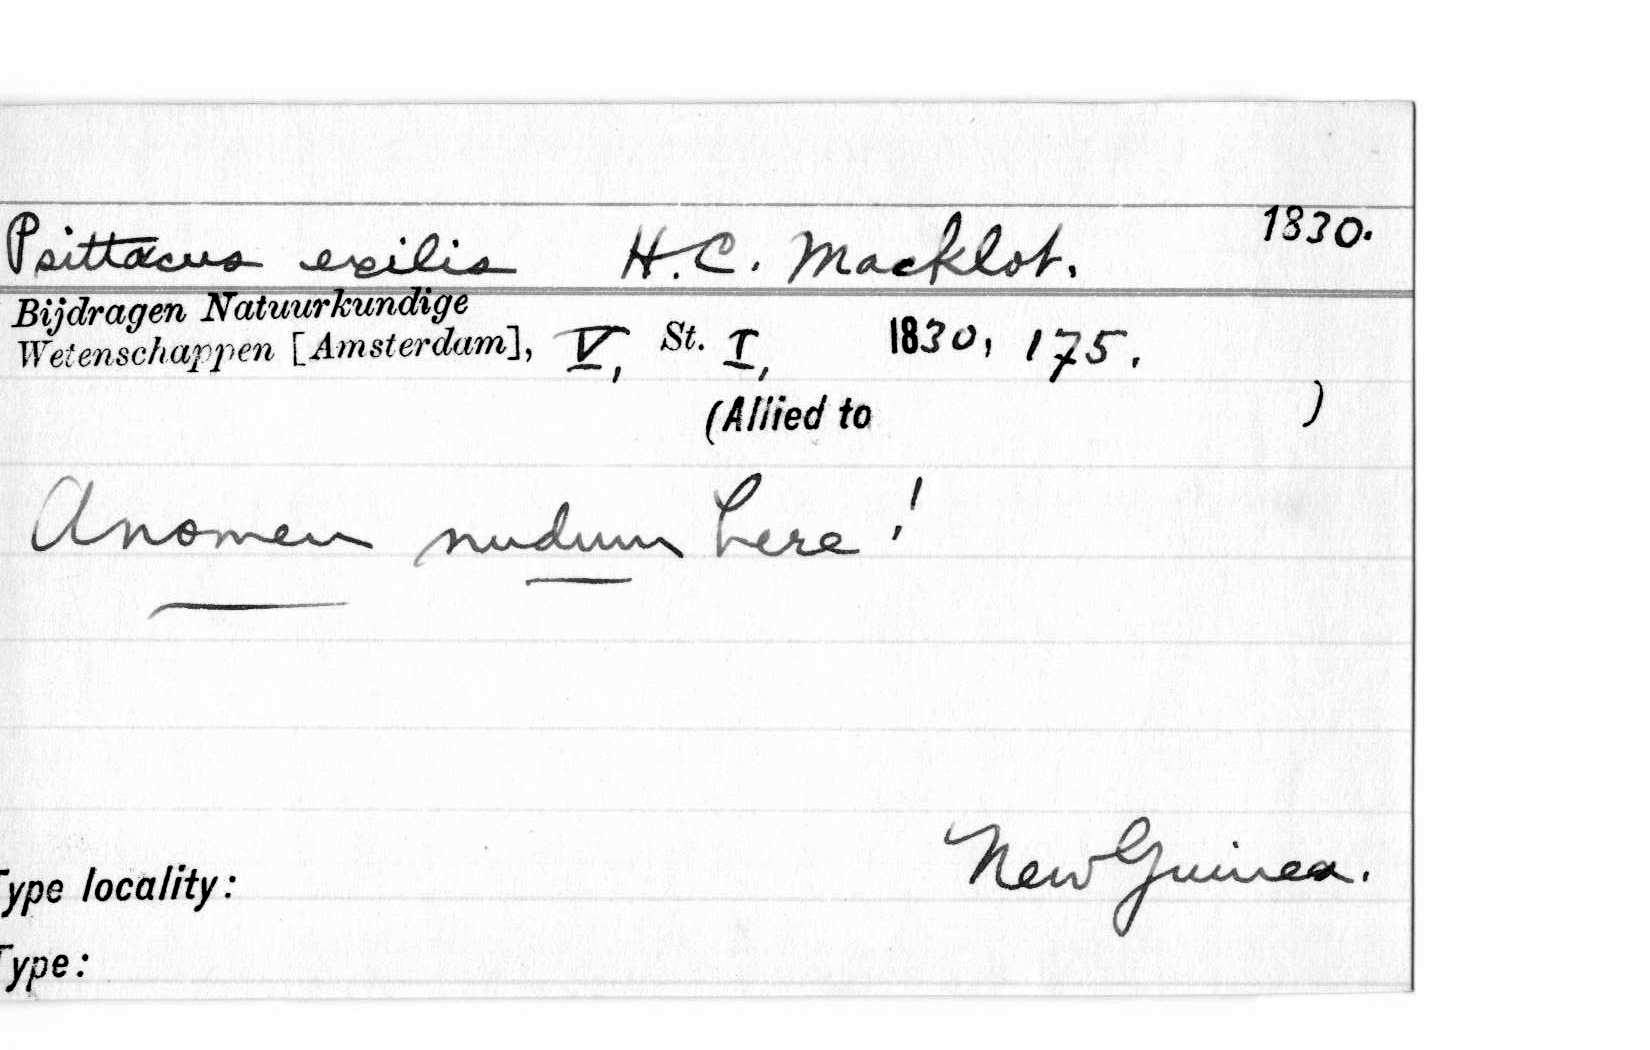 Psittacus exilis H.C. Macklot. 1830.
Bijdragen Natuurkundige
Wetenschappen [Amsterdam], V, St. I, 1830, 175.
(Allied to )
A nomen nudum here!
New Guinea.
Type locality:
Type: